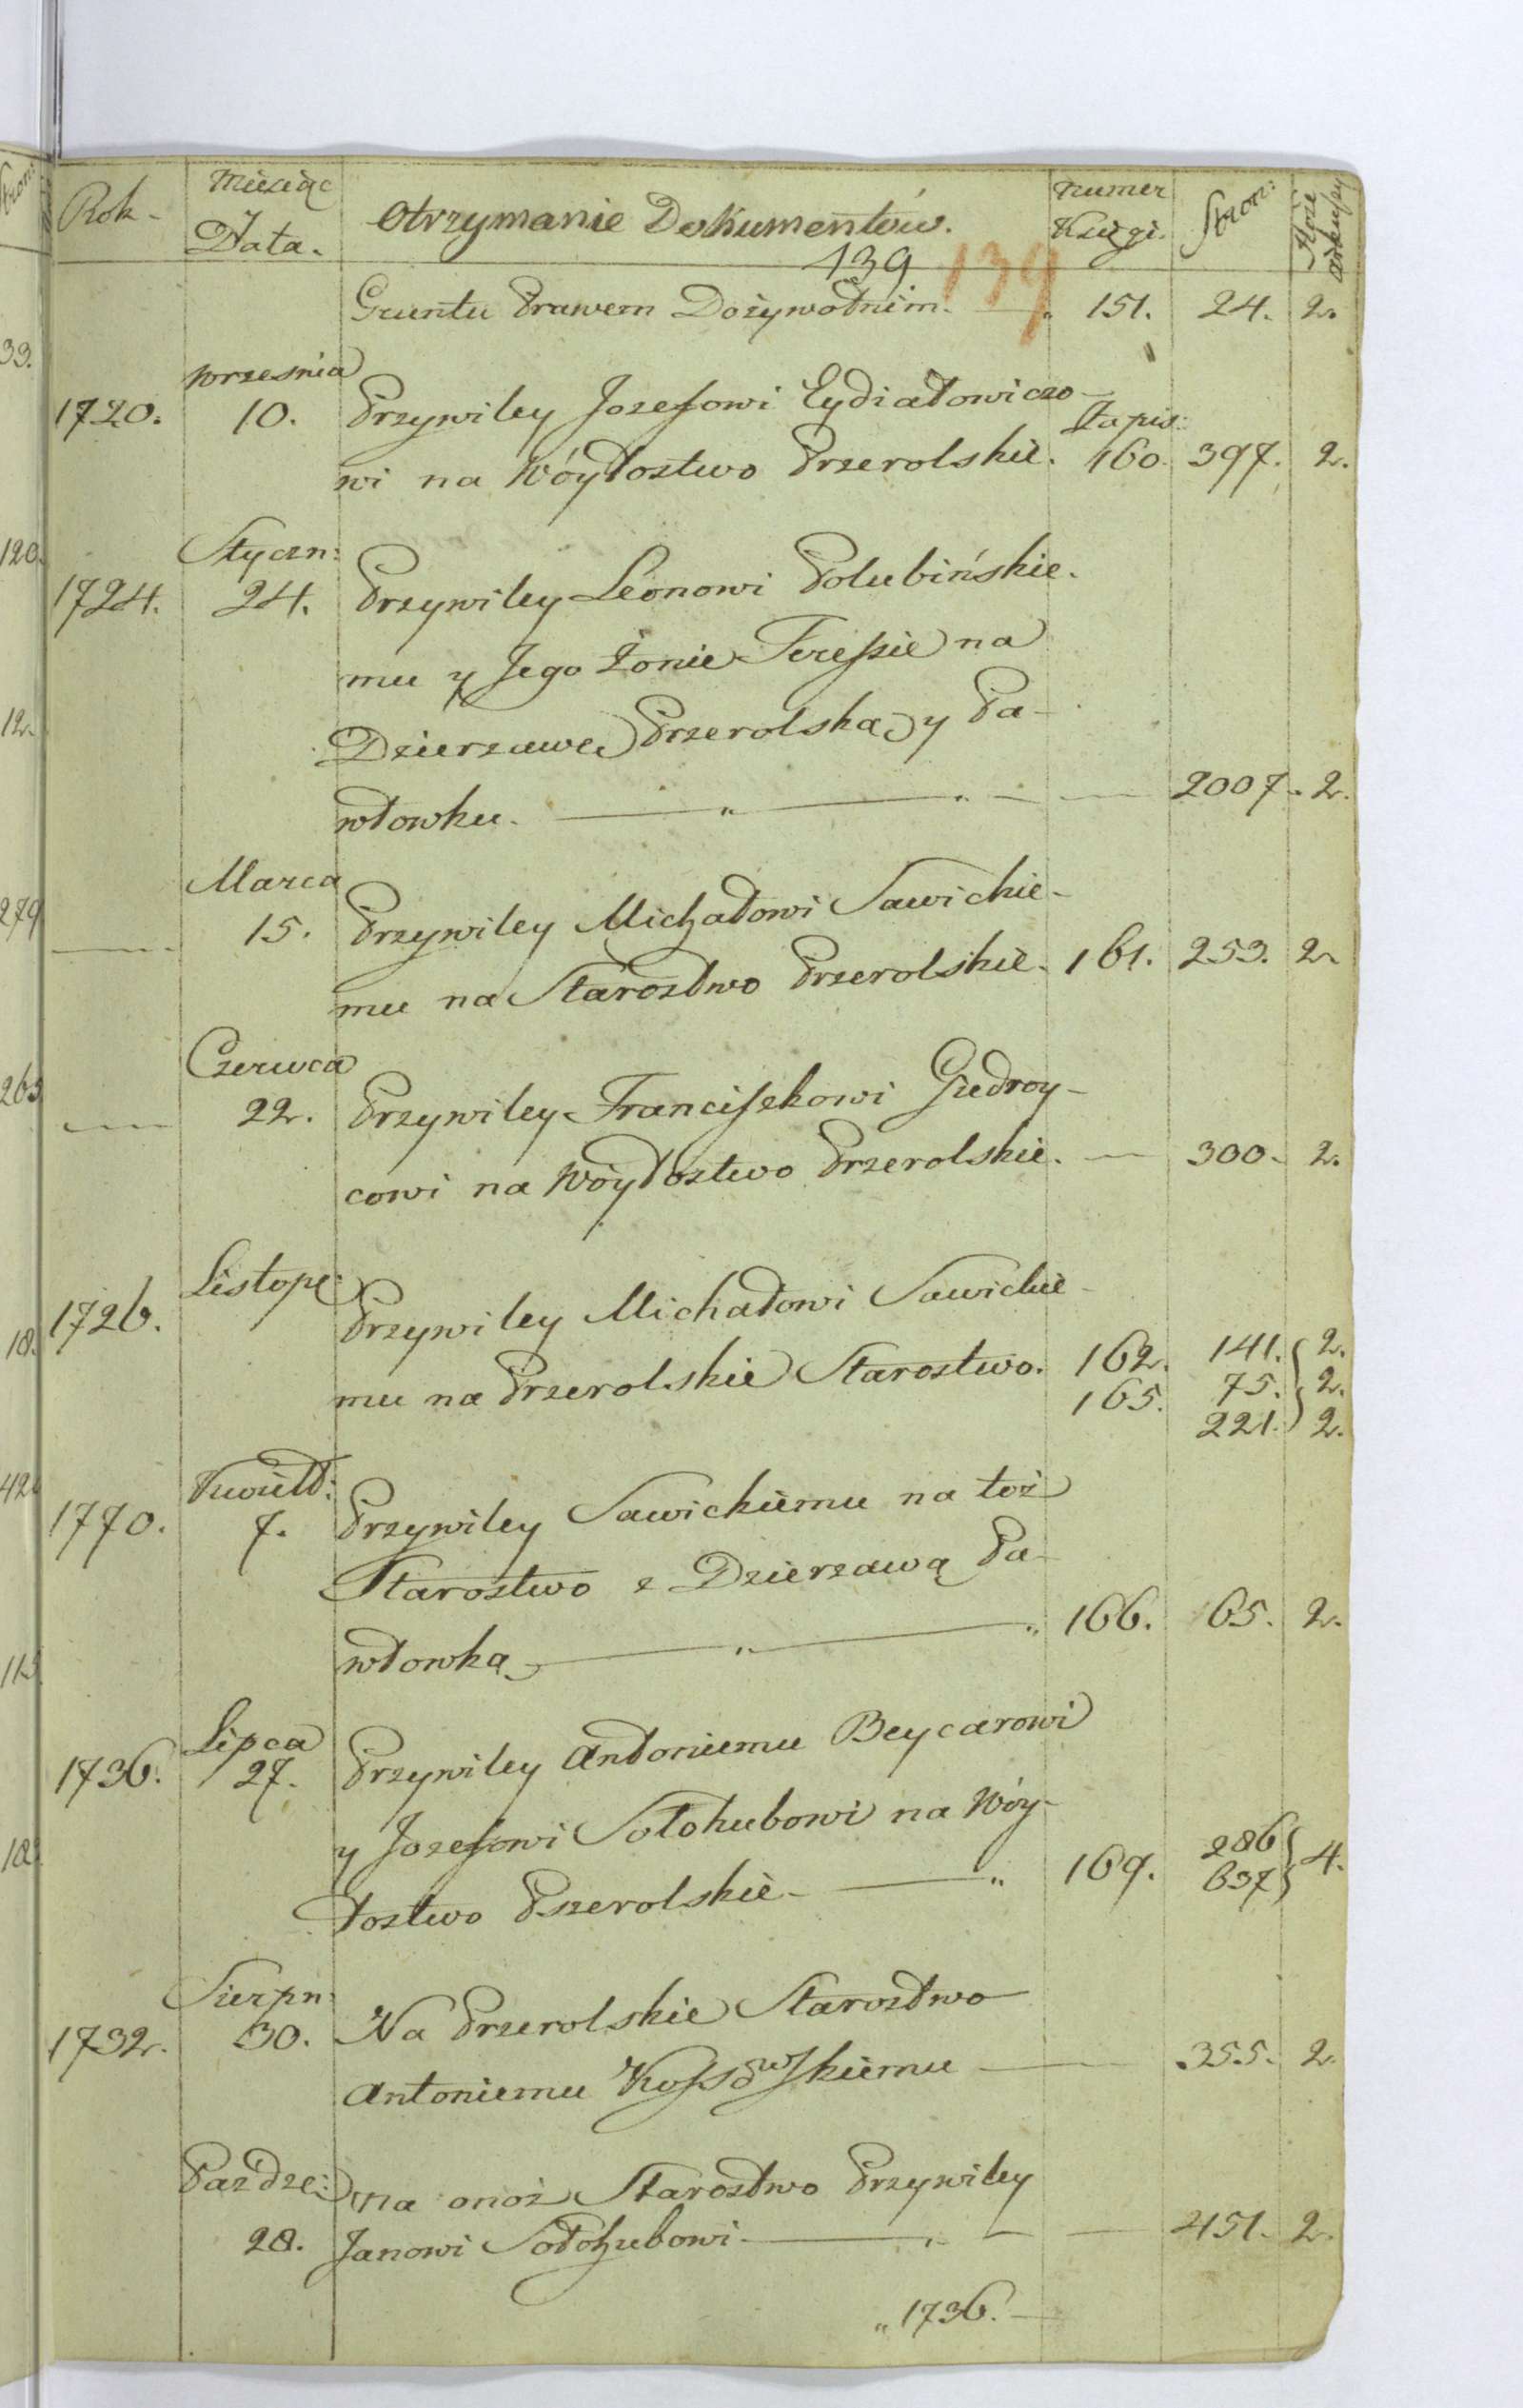 Rok. Miesiąc Data. Otrzymanie Dokumentów. Numer Księgi. Stron: Ilość arkuszy
139 139
Gruntu Prawem Dożywotnim. — 151. 24. 2.
Września
1720. 10. Przywiley Jozefowi Eydiatowiczo-
Zapis:
wi na Wóytostwo Przerolskie. 160. 397. 2.
Styczn:
1724. 24. Przywiley Leonowi Połubińskie.
mu y Jego Żonie Teressie na
Dzierzawę Przerolską y Pa-
włowku. — " — " — 2007. 2.
Marca
— 15. Przywiley Michałowi Sawickie-
mu na Starostwo Przerolskie. 161. 253. 2.
Czerwca
— 22. Przywiley Franciszkowi Giedroy-
cowi na Wóytostwo Przerolskie. — 300. 2.
Listopa:
1726. Przywiley Michałowi Sawickie-
mu na Przerolskie Starostwo. 162. 141. 2.
165. 75. 2.
221. 2.
Kwiet:
1770. 7. Przywiley Sawickiemu na toż
Starostwo z Dzierzawą Pa-
włowką — " — " 166. 65. 2.
Lipca
1736. 27. Przywiley Antoniemu Beycarowi
y Jozefowi Sołohubowi na Wóy-
tostwo Przerolskie. — " 169. 286 637 4.
Sierpn:
1732. 30. Na Przerolskie Starostwo
Antoniemu Kossowskiemu — 355. 2.
Paźdze: na onoż Starostwo Przywiley
28. Janowi Sołohubowi. — 451. 2.
" 1736. —